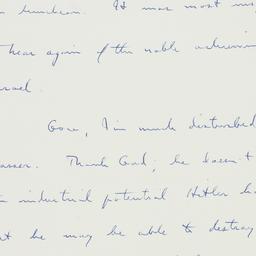 luncheon. It was most
hear again of the noble
Gosh, I'm much disturbed
Thank God, he doesn't
industrial potential Hitler
he may be able to destroy